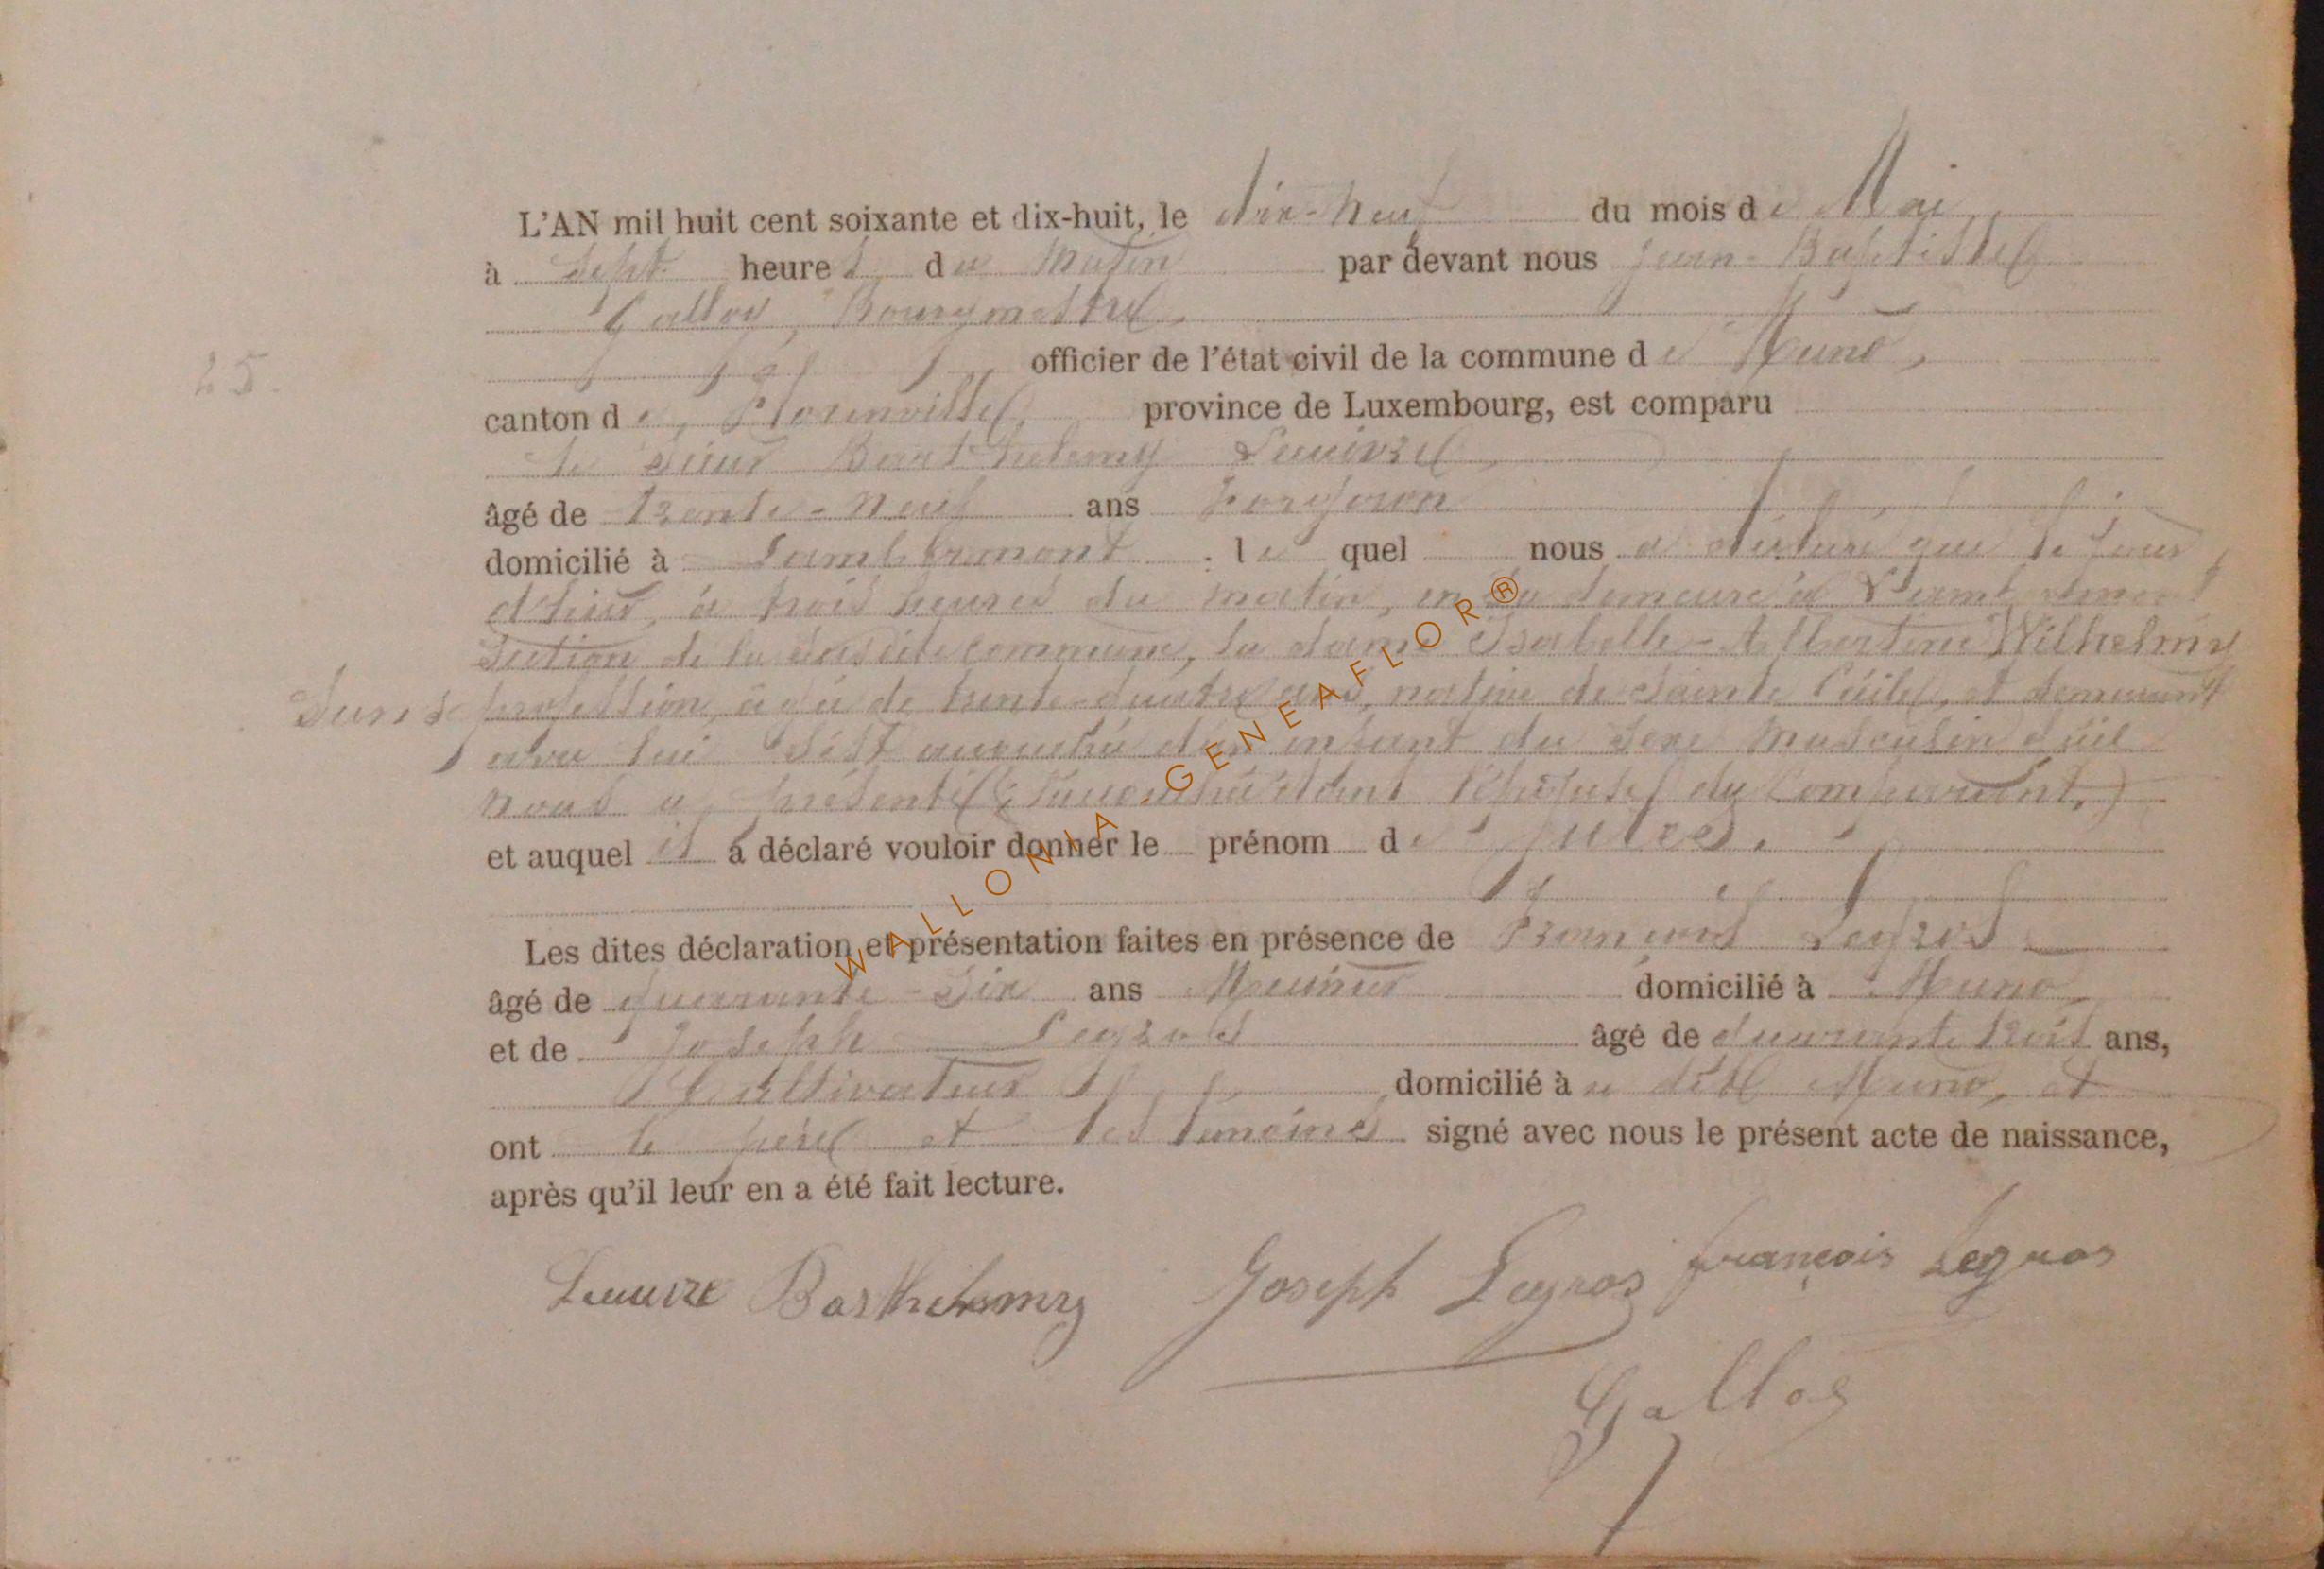 L'AN mil huit cent soixante et dix-huit, le dix-neuf du mois de Mai,
à Sept heures du Matin par devant nous Jean-Baptiste
Galloy, Bourgmestre,
25.
officier de l'état civil de la commune de Muno,
canton de Florenville, province de Luxembourg, est comparu
le Sieur Barthelemy
âgé de trente-neuf ans Forgeron
domicilié à Lambermont . lequel nous a déclaré que le jour
d'hier, à trois heures du matin, en sa demeure à Lambermont
Section de la susdite commune, la dame Isabelle-Albertine Wilhelmy
Sans profession, âgée de trente-quatre ans, native de Sainte Cécile, et demeurant
avec lui s'est accouchée d'un enfant du sexe masculin qu'il
nous a présenté (l'accouchée étant l'épouse du Comparant,)
et auquel il a déclaré vouloir donner le prénom de Jules.
Les dites déclaration et présentation faites en présence de François Legros
âgé de quarante-six ans Meunier domicilié à Muno
et de Joseph Legros âgé de quarante trois ans,
Cultivateur domicilié à u dit Muno, et
ont le père et les témoins signé avec nous le présent acte de naissance,
après qu'il leur en a été fait lecture.
Barthelemy Joseph Legros françois Legros
Galloy
WALLONIA GENEAFLOR®